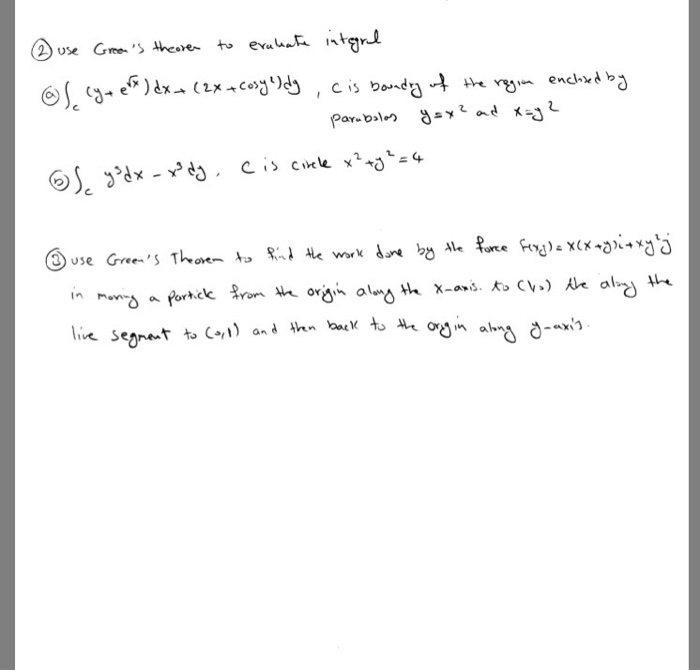 ② use Green's theorem to evaluate integral
ⓐ ∫c (y + e^√x) dx + (2x + cosy²) dy , C is boundry of the region enclosed by
parabolas y = x² and x = y²
ⓑ ∫c y³dx - x³dy , C is circle x² + y² = 4
③ use Green's Theorem to find the work done by the force F(x,y) = x(x+y)i + xy²j
in moving a partick from the origin along the x-axis. to (1,0) the along the
line segment to (0,1) and then back to the orgin along y-axis.